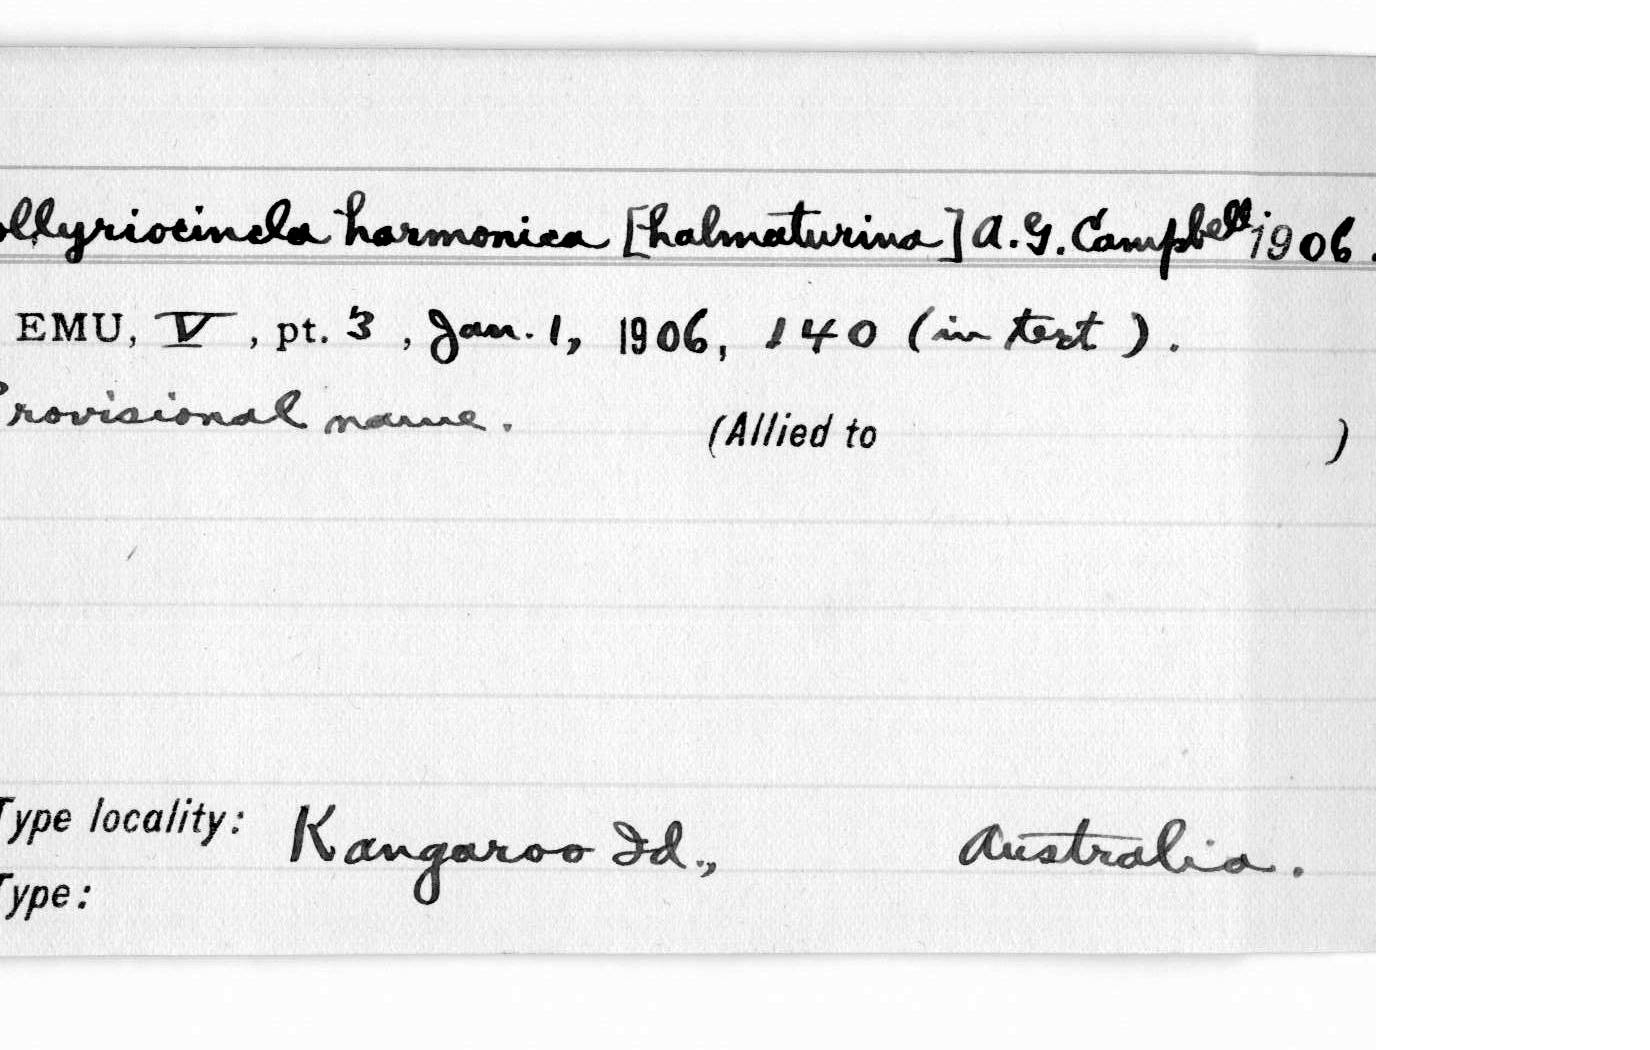 ollyriocincla harmonica [halmaturina] A.G. Campbell 1906.
EMU, V, pt. 3, Jan. 1, 1906, 140 (in text).
Provisional name. (Allied to )
Type locality: Kangaroo Id., Australia.
Type: